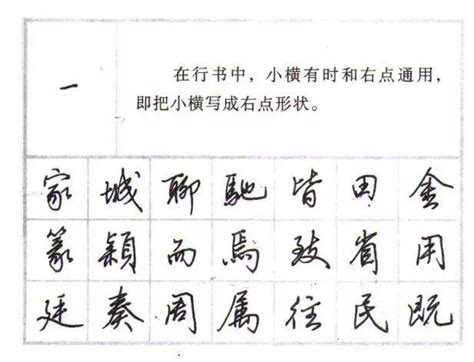 一
在行书中，小横有时和右点通用，
即把小横写成右点形状。
家城聊馳皆田金
篆穎而焉致省用
廷奏周属往民既